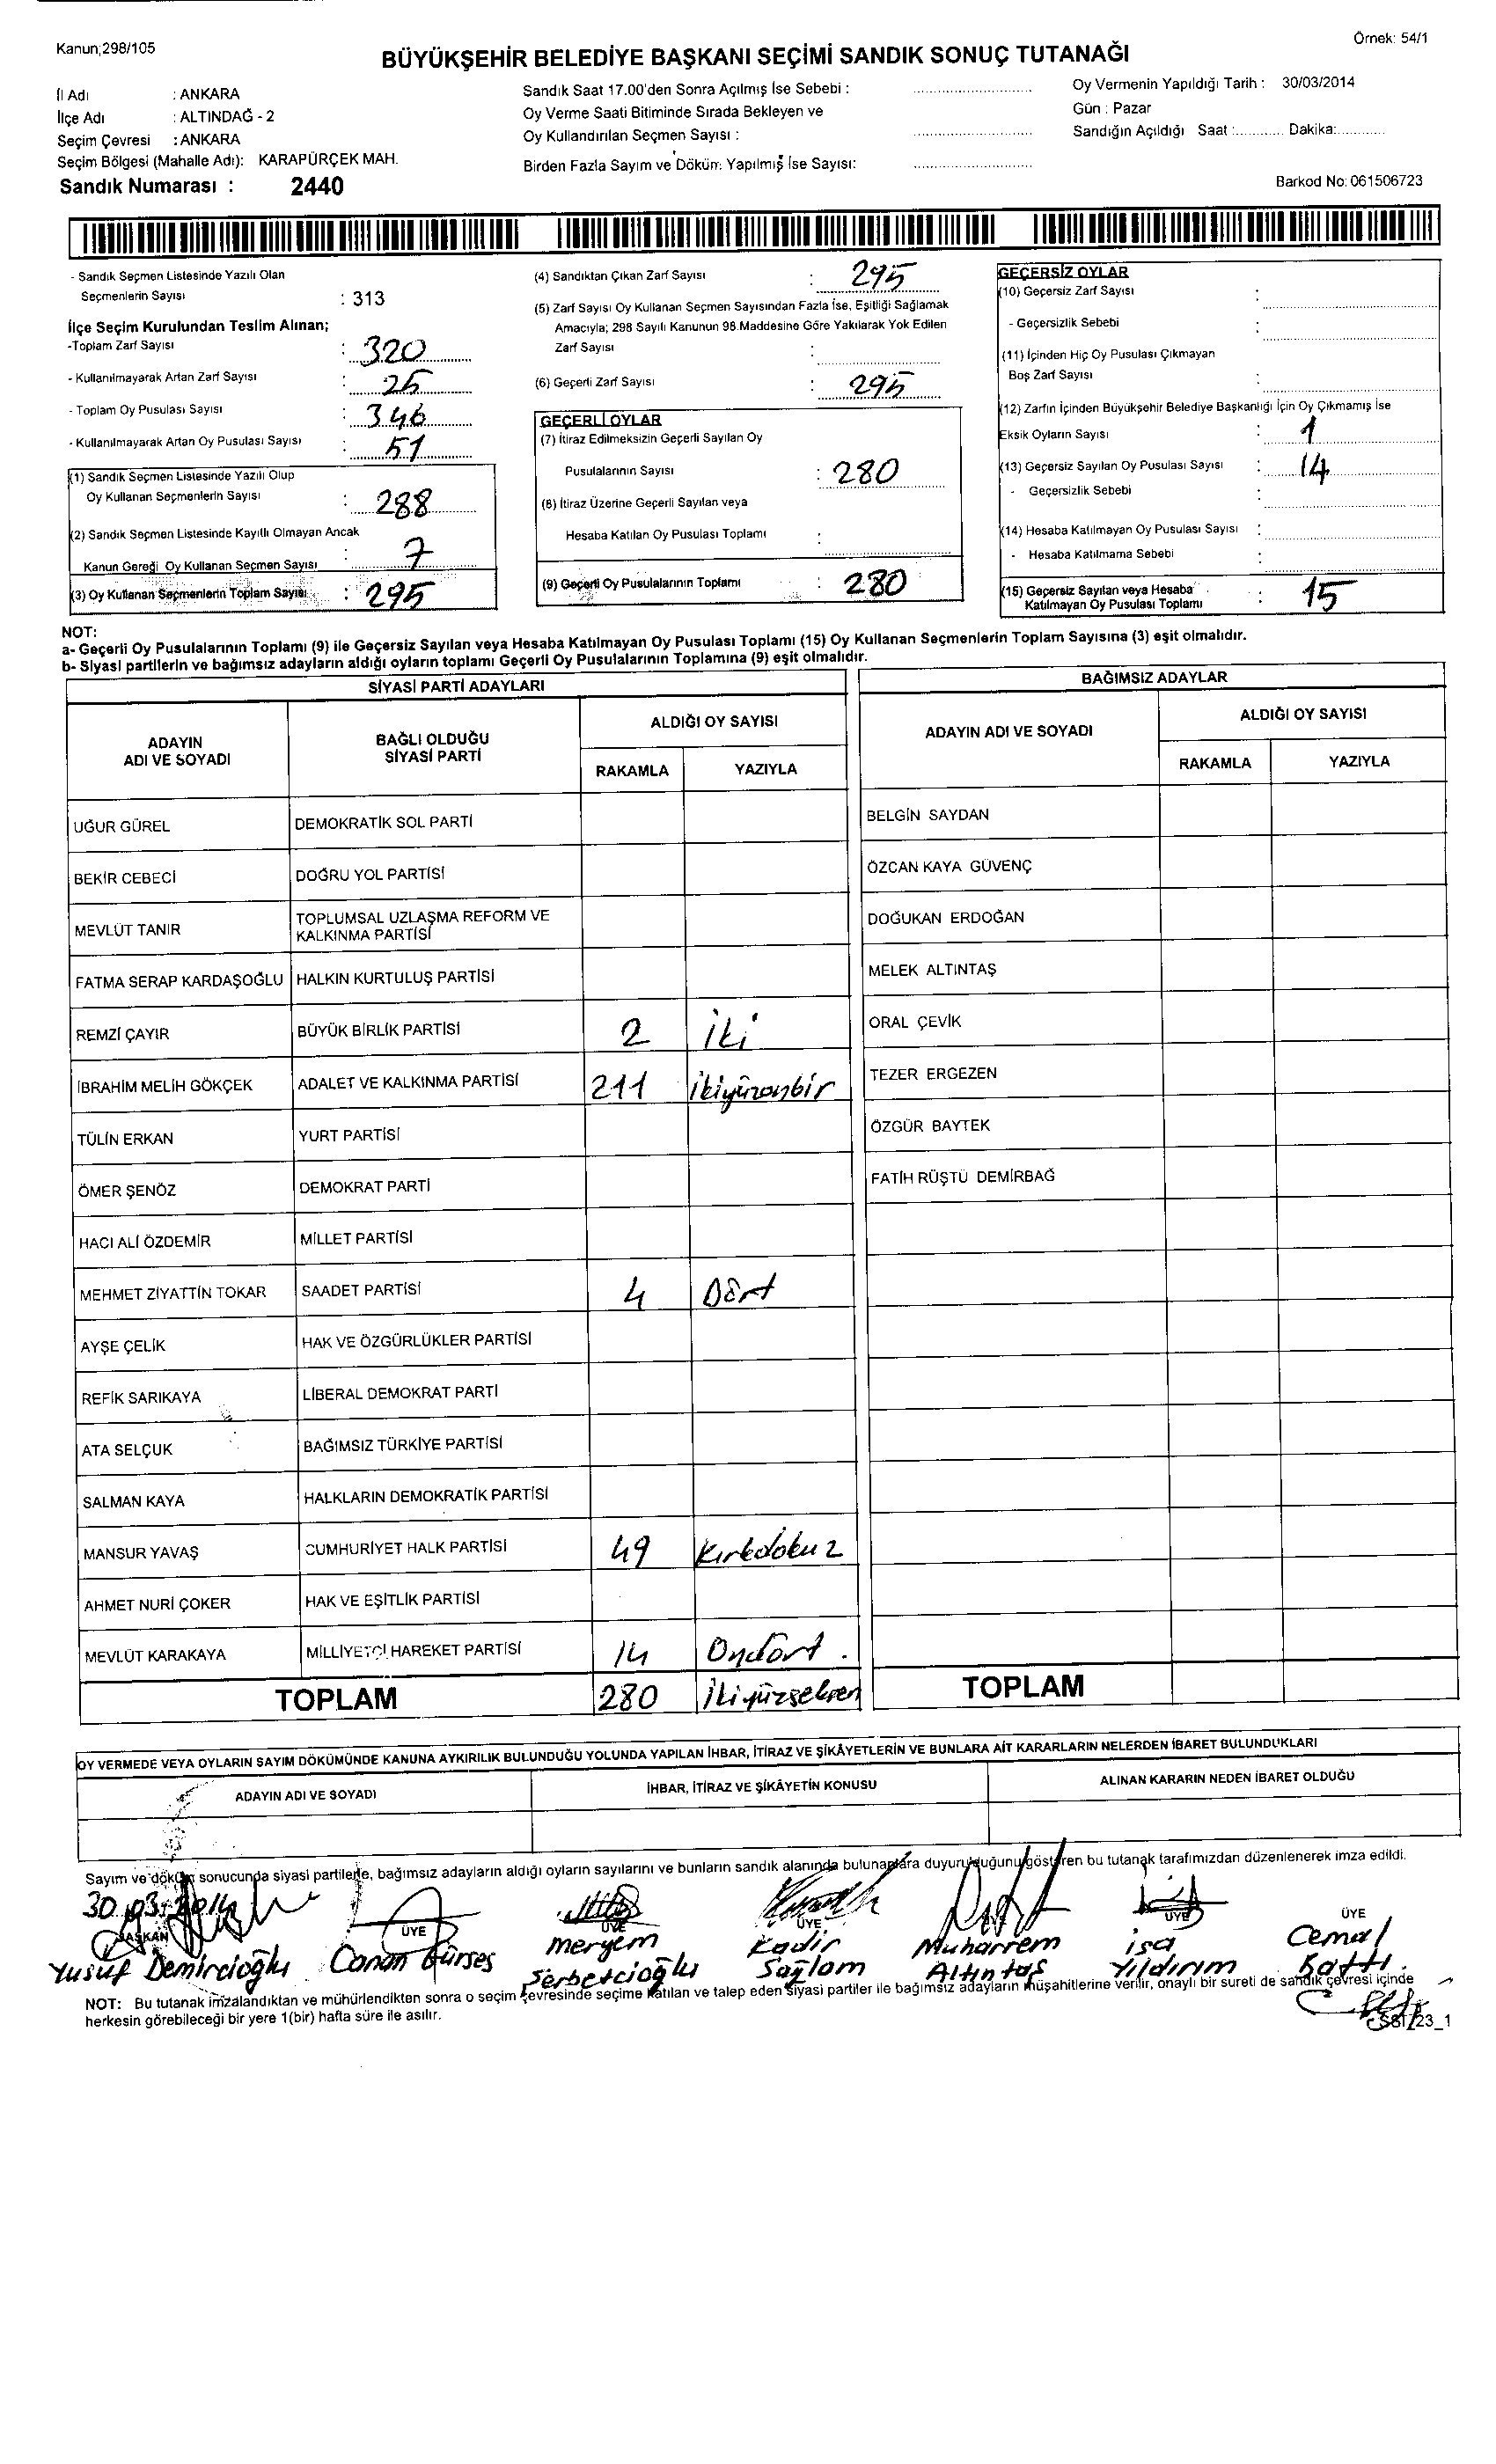 Kanun;298/105
Örnek: 54/1
BÜYÜKŞEHİR BELEDİYE BAŞKANI SEÇİMİ SANDIK SONUÇ TUTANAĞI
İl Adı : ANKARA
İlçe Adı : ALTINDAĞ - 2
Seçim Çevresi : ANKARA
Seçim Bölgesi (Mahalle Adı): KARAPÜRÇEK MAH.
Sandık Numarası : 2440
Sandık Saat 17.00'den Sonra Açılmış İse Sebebi :
Oy Verme Saati Bitiminde Sırada Bekleyen ve
Oy Kullandırılan Seçmen Sayısı :
Birden Fazla Sayım ve Döküm Yapılmış İse Sayısı:
Oy Vermenin Yapıldığı Tarih : 30/03/2014
Gün : Pazar
Sandığın Açıldığı Saat :............ Dakika:............
Barkod No: 061506723
- Sandık Seçmen Listesinde Yazılı Olan
Seçmenlerin Sayısı : 313
İlçe Seçim Kurulundan Teslim Alınan;
-Toplam Zarf Sayısı : 320
- Kullanılmayarak Artan Zarf Sayısı : 25
- Toplam Oy Pusulası Sayısı : 346
- Kullanılmayarak Artan Oy Pusulası Sayısı : 51
(1) Sandık Seçmen Listesinde Yazılı Olup
Oy Kullanan Seçmenlerin Sayısı : 288
(2) Sandık Seçmen Listesinde Kayıtlı Olmayan Ancak
Kanun Gereği Oy Kullanan Seçmen Sayısı : 7
(3) Oy Kullanan Seçmenlerin Toplam Sayısı : 295
(4) Sandıktan Çıkan Zarf Sayısı : 295
(5) Zarf Sayısı Oy Kullanan Seçmen Sayısından Fazla İse, Eşitliği Sağlamak
Amacıyla; 298 Sayılı Kanunun 98.Maddesine Göre Yakılarak Yok Edilen
Zarf Sayısı :
(6) Geçerli Zarf Sayısı : 295
GEÇERLİ OYLAR
(7) İtiraz Edilmeksizin Geçerli Sayılan Oy
Pusulalarının Sayısı : 280
(8) İtiraz Üzerine Geçerli Sayılan veya
Hesaba Katılan Oy Pusulası Toplamı :
(9) Geçerli Oy Pusulalarının Toplamı : 280
GEÇERSİZ OYLAR
(10) Geçersiz Zarf Sayısı :
- Geçersizlik Sebebi :
(11) İçinden Hiç Oy Pusulası Çıkmayan
Boş Zarf Sayısı :
(12) Zarfın İçinden Büyükşehir Belediye Başkanlığı İçin Oy Çıkmamış İse
Eksik Oyların Sayısı : 1
(13) Geçersiz Sayılan Oy Pusulası Sayısı : 14
- Geçersizlik Sebebi :
(14) Hesaba Katılmayan Oy Pusulası Sayısı :
- Hesaba Katılmama Sebebi :
(15) Geçersiz Sayılan veya Hesaba
Katılmayan Oy Pusulası Toplamı : 15
NOT:
a- Geçerli Oy Pusulalarının Toplamı (9) ile Geçersiz Sayılan veya Hesaba Katılmayan Oy Pusulası Toplamı (15) Oy Kullanan Seçmenlerin Toplam Sayısına (3) eşit olmalıdır.
b- Siyasi partilerin ve bağımsız adayların aldığı oyların toplamı Geçerli Oy Pusulalarının Toplamına (9) eşit olmalıdır.
SİYASİ PARTİ ADAYLARI
ADAYIN ADI VE SOYADI
BAĞLI OLDUĞU SİYASİ PARTİ
ALDIĞI OY SAYISI
RAKAMLA YAZIYLA
UĞUR GÜREL DEMOKRATİK SOL PARTİ
BEKİR CEBECİ DOĞRU YOL PARTİSİ
MEVLÜT TANIR TOPLUMSAL UZLAŞMA REFORM VE KALKINMA PARTİSİ
FATMA SERAP KARDAŞOĞLU HALKIN KURTULUŞ PARTİSİ
REMZİ ÇAYIR BÜYÜK BİRLİK PARTİSİ 2 İki
İBRAHİM MELİH GÖKÇEK ADALET VE KALKINMA PARTİSİ 211 İkiyüzonbir
TÜLİN ERKAN YURT PARTİSİ
ÖMER ŞENÖZ DEMOKRAT PARTİ
HACI ALİ ÖZDEMİR MİLLET PARTİSİ
MEHMET ZİYATTİN TOKAR SAADET PARTİSİ 4 Dört
AYŞE ÇELİK HAK VE ÖZGÜRLÜKLER PARTİSİ
REFİK SARIKAYA LİBERAL DEMOKRAT PARTİ
ATA SELÇUK BAĞIMSIZ TÜRKİYE PARTİSİ
SALMAN KAYA HALKLARIN DEMOKRATİK PARTİSİ
MANSUR YAVAŞ CUMHURİYET HALK PARTİSİ 49 Kırkdokuz
AHMET NURİ ÇOKER HAK VE EŞİTLİK PARTİSİ
MEVLÜT KARAKAYA MİLLİYETÇİ HAREKET PARTİSİ 14 Ondört.
TOPLAM 280 İkiyüzseksen
BAĞIMSIZ ADAYLAR
ADAYIN ADI VE SOYADI
ALDIĞI OY SAYISI
RAKAMLA YAZIYLA
BELGİN SAYDAN
ÖZCAN KAYA GÜVENÇ
DOĞUKAN ERDOĞAN
MELEK ALTINTAŞ
ORAL ÇEVİK
TEZER ERGEZEN
ÖZGÜR BAYTEK
FATİH RÜŞTÜ DEMİRBAĞ
TOPLAM
OY VERMEDE VEYA OYLARIN SAYIM DÖKÜMÜNDE KANUNA AYKIRILIK BULUNDUĞU YOLUNDA YAPILAN İHBAR, İTİRAZ VE ŞİKÂYETLERİN VE BUNLARA AİT KARARLARIN NELERDEN İBARET BULUNDUKLARI
ADAYIN ADI VE SOYADI İHBAR, İTİRAZ VE ŞİKÂYETİN KONUSU ALINAN KARARIN NEDEN İBARET OLDUĞU
Sayım ve döküm sonucunda siyasi partilerle, bağımsız adayların aldığı oyların sayılarını ve bunların sandık alanında bulunanlara duyurulduğunu gösteren bu tutanak tarafımızdan düzenlenerek imza edildi.
30.03.2014
BAŞKAN ÜYE ÜYE ÜYE ÜYE ÜYE
Yusuf Demircioğlu Canan Gürses Meryem Şerbetcioğlu Kadir Sağlam Muharrem Altıntaş isa Yıldırım Cemal Battı.
NOT: Bu tutanak imzalandıktan ve mühürlendikten sonra o seçim çevresinde seçime katılan ve talep eden siyasi partiler ile bağımsız adayların müşahitlerine verilir, onaylı bir sureti de sandık çevresi içinde
herkesin görebileceği bir yere 1(bir) hafta süre ile asılır.